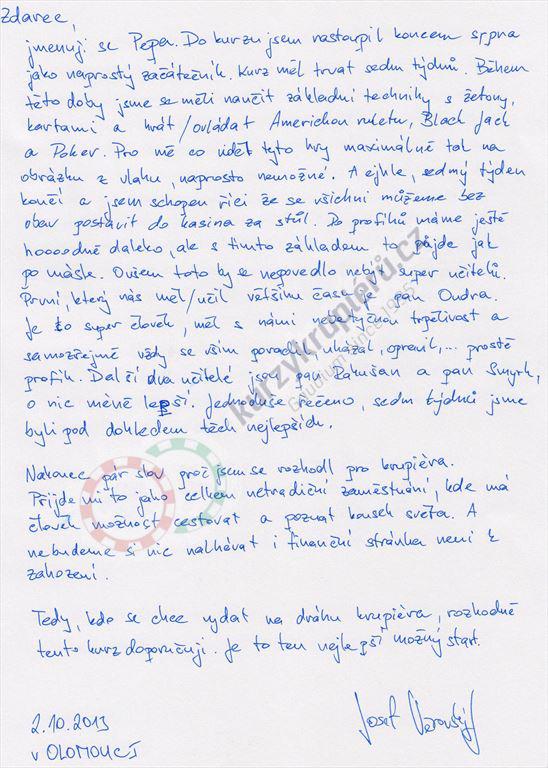 Zdavec,
jmenuji se Pepa. Do kurzu jsem nastoupil koncem srpna
jako naprostý začátečník. Kurz měl trvat sedm týdnů. Během
této doby jsme se měli naučit základní techniky s žetony,
kartami a hrát/ovládat Americkou ruletu, Black Jack
a Poker. Pro mě co viděl tyto hry maximálně tak na
obrázku z vlaku, naprosto nemožné. A ejhle, sedmý týden
končí a jsem schopen říci že se všichni můžeme bez
obav postavit do kasina za stůl. Do profíků máme ještě
hoooodně daleko, ale s tímto základem to půjde jak
po másle. Ovšem toto by se nepovedlo nebýt super učitelů.
První, který nás měl/učil většinu času je pan Ondra.
Je to super člověk, měl s námi trpělivost a
samozřejmě vždy se vším poradil, ukázal, opravil,... prostě
profík. Další dva učitelé jsou pan Rakušan a pan Smrk,
o nic méně lepší. Jednoduše řečeno, sedm týdnů jsme
byli pod dohledem těch nejlepších.
Nakonec pár slov proč jsem se rozhodl pro krupiéra.
Přijde mi to jako celkem netradiční zaměstnání, kde má
člověk možnost cestovat a poznat kousek světa. A
nebudeme si nic nalhávat i finanční stránka není k
zahození.
Tedy, kdo se chce vydat na dráhu krupiéra, rozhodně
tento kurz doporučuji. Je to ten nejlepší možný start.
2.10.2013
v OLOMOUCI
Josef
kurzykrupieru.cz
Gaudium since 1995